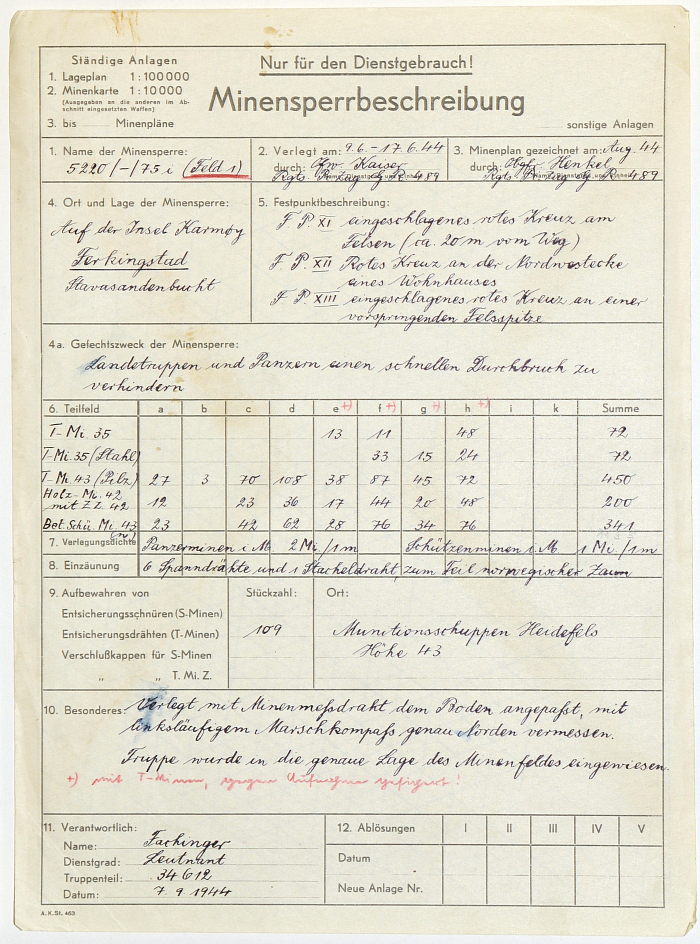 Ständige Anlagen
1. Lageplan 1:100000
2. Minenkarte 1:10000
(Ausgegeben an die anderen im Ab-
schnitt eingesetzten Waffen)
3. bis Minenpläne
Nur für den Dienstgebrauch!
Minensperrbeschreibung
sonstige Anlagen
1. Name der Minensperre:
5220/-/75 i (Feld 1)
2. Verlegt am: 9.6. - 17.6.44
durch: Kaiser
Rgts. Pi. Zug G R 489
3. Minenplan gezeichnet am: Aug. 44
durch: Obgfr. Henkel
Rgts. Pi. Zug G R 489
4. Ort und Lage der Minensperre:
Auf der Insel Karmøy
Ferkingstad
Stavasandenbucht
5. Festpunktbeschreibung:
F. P. XI eingeschlagenes rotes Kreuz am
Felsen (ca. 20 m vom Weg)
F. P. XII Rotes Kreuz an der Nordwestecke
eines Wohnhauses
F. P. XIII eingeschlagenes rotes Kreuz an einer
vorspringenden Felsspitze
4a. Gefechtszweck der Minensperre:
Landetruppen und Panzern einen schnellen Durchbruch zu
verhindern
6. Teilfeld a b c d e +) f +) g +) h +) i k Summe
T-Mi. 35 13 11 48 72
T-Mi. 35 (Stahl) 33 15 24 72
T-Mi. 43 (Pilz) 27 3 70 108 38 87 45 72 450
Holz-Mi. 42
mit Z.Z. 42 12 23 36 17 44 20 48 200
Bet. Schü. Mi. 43 (n) 23 42 62 28 76 34 76 341
7. Verlegungsdichte Panzerminen i. M. 2 Mi/1m Schützenminen i. M. 1 Mi/1m
8. Einzäunung 6 Spanndrähte und 1 Stacheldraht, zum Teil norwegischer Zaun
9. Aufbewahren von
Entsicherungsschnüren (S-Minen)
Entsicherungsdrähten (T-Minen)
Verschlußkappen für S-Minen
„ „ T. Mi. Z.
Stückzahl:
109
Ort:
Munitionsschuppen Heidefels
Höhe 43
10. Besonderes: Verlegt mit Minenmessdraht dem Boden angepaßt, mit
linksläufigem Marschkompaß genau Norden vermessen.
Truppe wurde in die genaue Lage des Minenfeldes eingewiesen.
+) mit T-Minen, gegen Aufnehmen gesichert!
11. Verantwortlich:
Name: Fachinger
Dienstgrad: Leutnant
Truppenteil: 34612
Datum: 7.9.1944
12. Ablösungen I II III IV V
Datum
Neue Anlage Nr.
A.K.St. 463